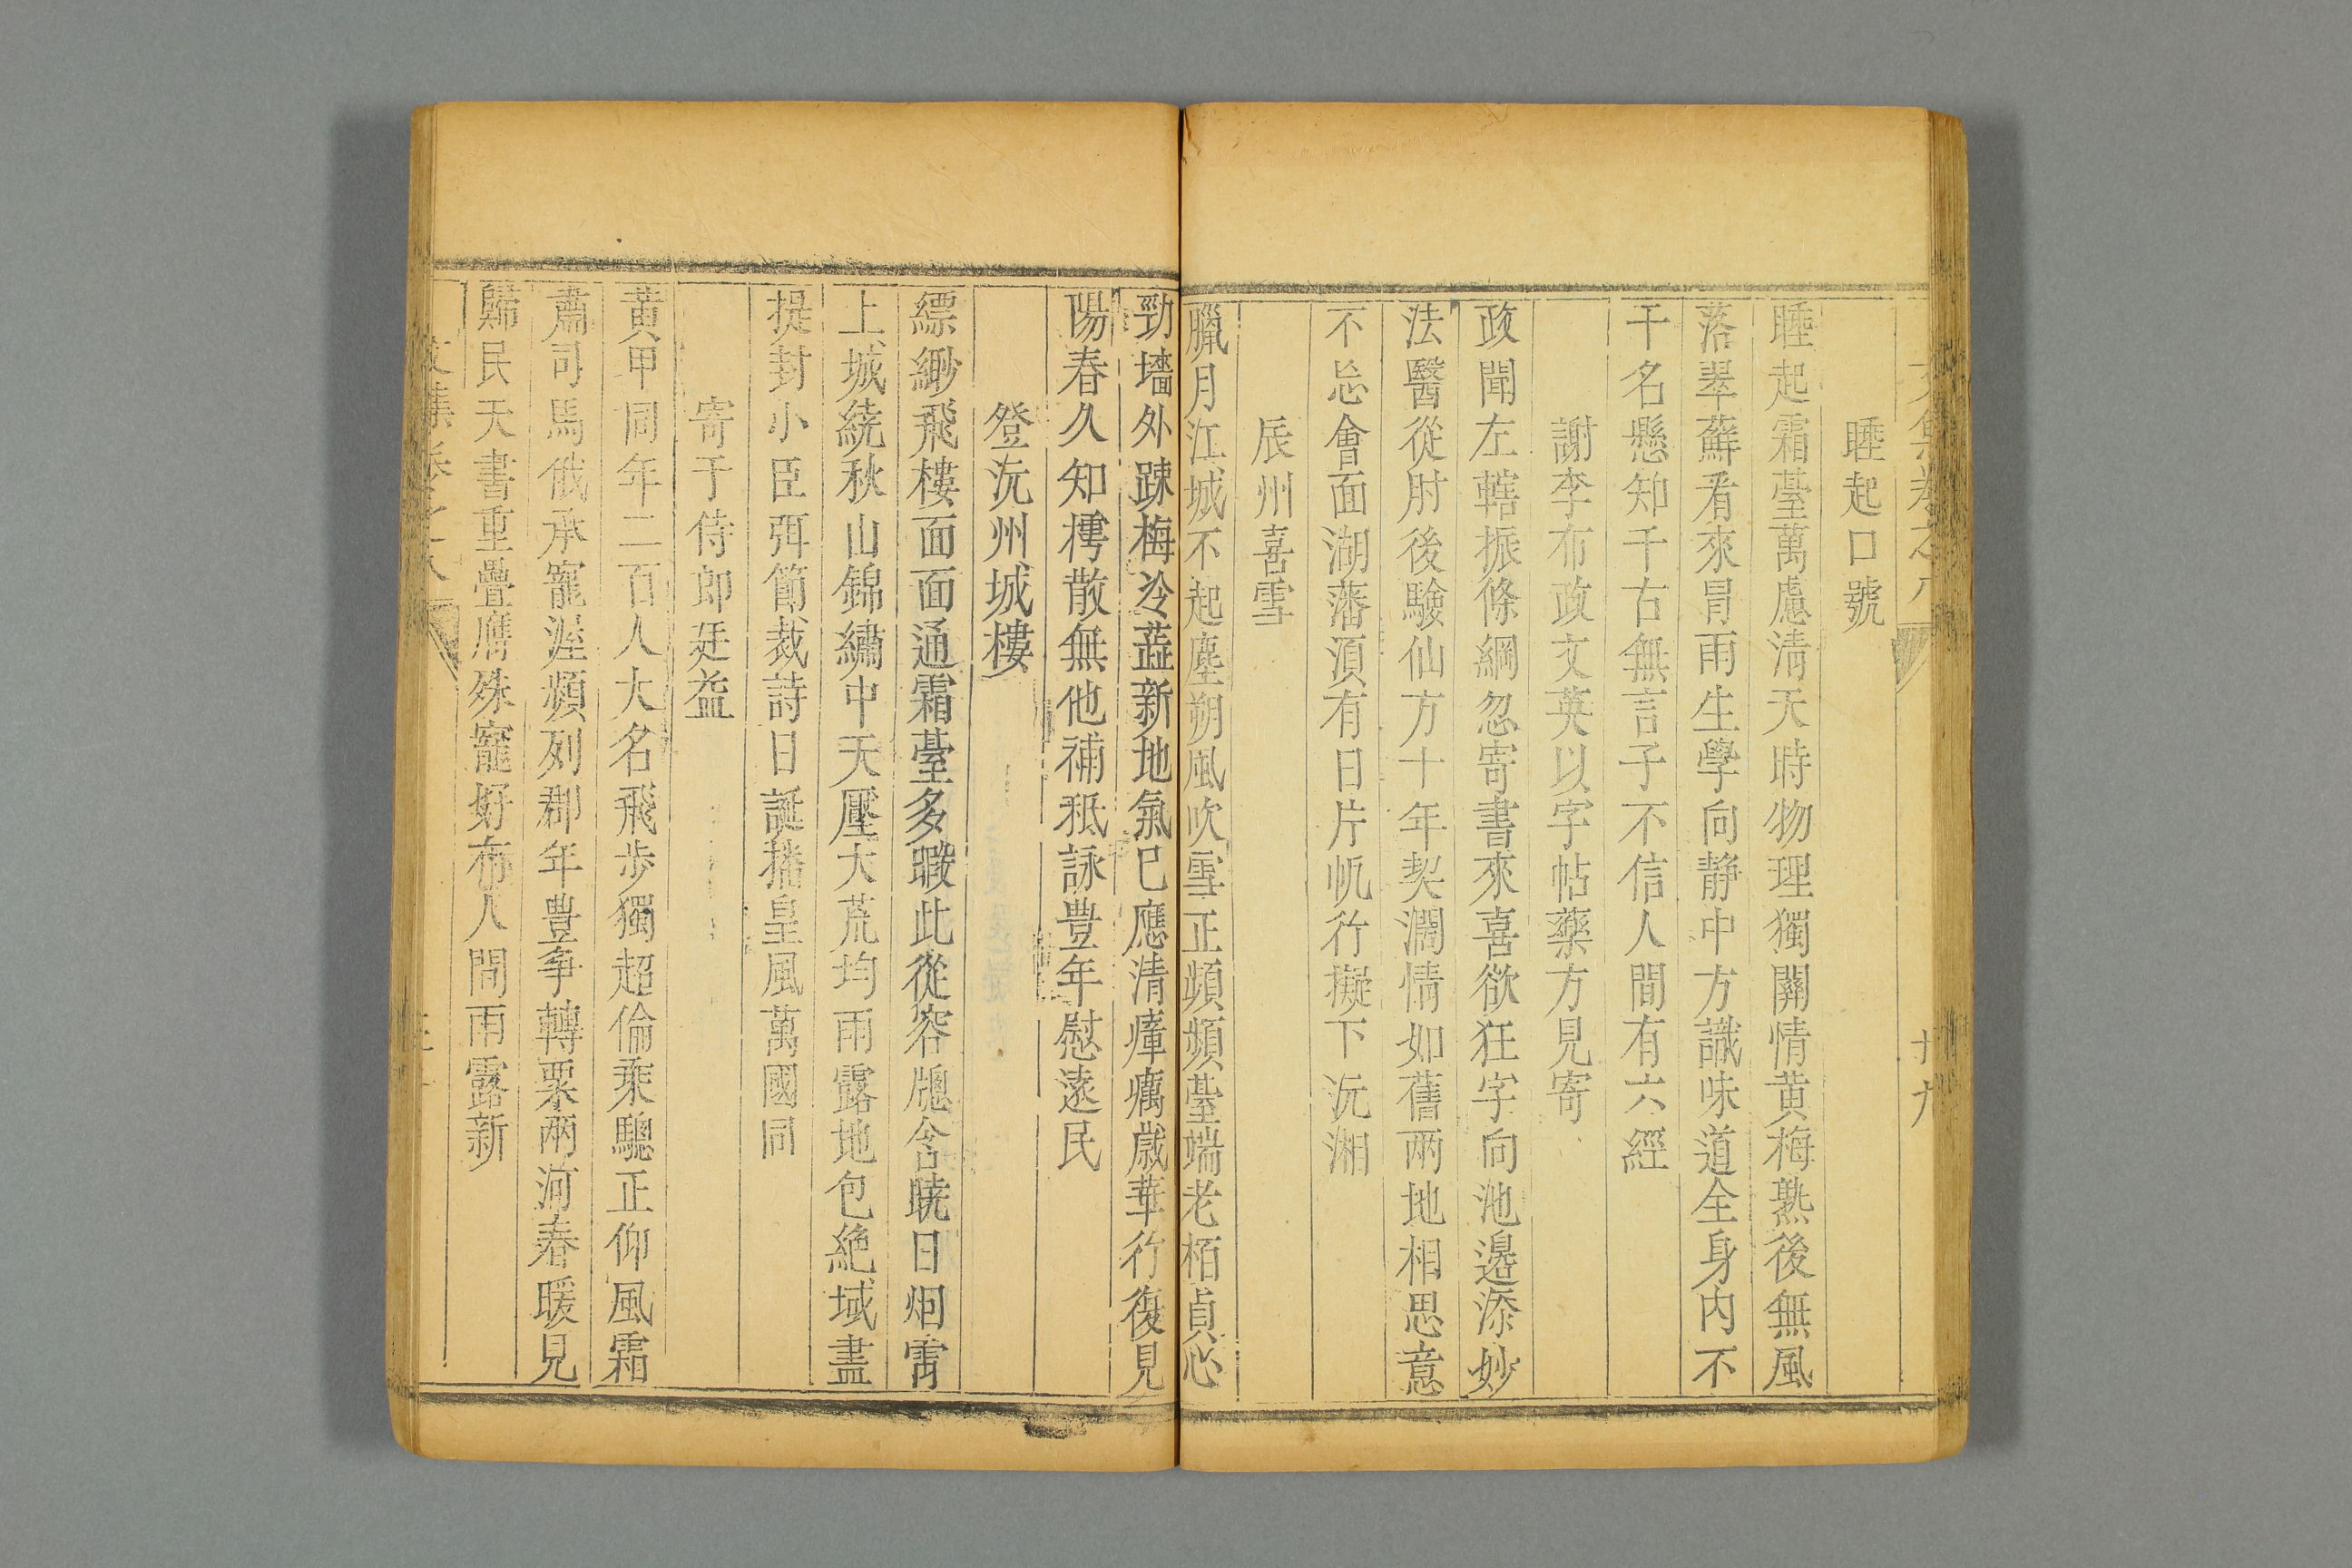 文集卷之八 廿九
睡起口號
睡起霜臺萬慮清天時物理獨關情黄梅熟後無風
落翠蘚看來冐雨生學向靜中方識味道全身内不
干名懸知千古無言子不信人間有六經
謝李布政文英以字帖藥方見寄
政聞左轄振條綱忽寄書來喜欲狂字向池邉添妙
法醫從肘後驗仙方十年契濶情如舊兩地相思意
不忘會面湖藩湏有日片帆行擬下沅湘
辰州喜雪
臘月江城不起塵朔風吹雪正頻頻臺端老栢貞心
勁墻外踈梅冷蘂新地氣巳應清瘴癘歳華行復見
陽春久知樗散無他補秪詠豊年慰逺民
登沅州城樓
縹緲飛樓面面通霜臺多暇此從容牕含曉日烟霄
上城繞秋山錦繡中天壓大荒均雨露地包絶域盡
提封小臣弭節裁詩日誕播皇風萬國同
寄于侍郎廷益
黄甲同年二百人大名飛步獨超倫乘驄正仰風霜
肅司馬俄承寵渥頻列郡年豊爭轉粟兩河春暖見
歸民天書重疊膺殊寵好布人間雨露新
文集卷之八